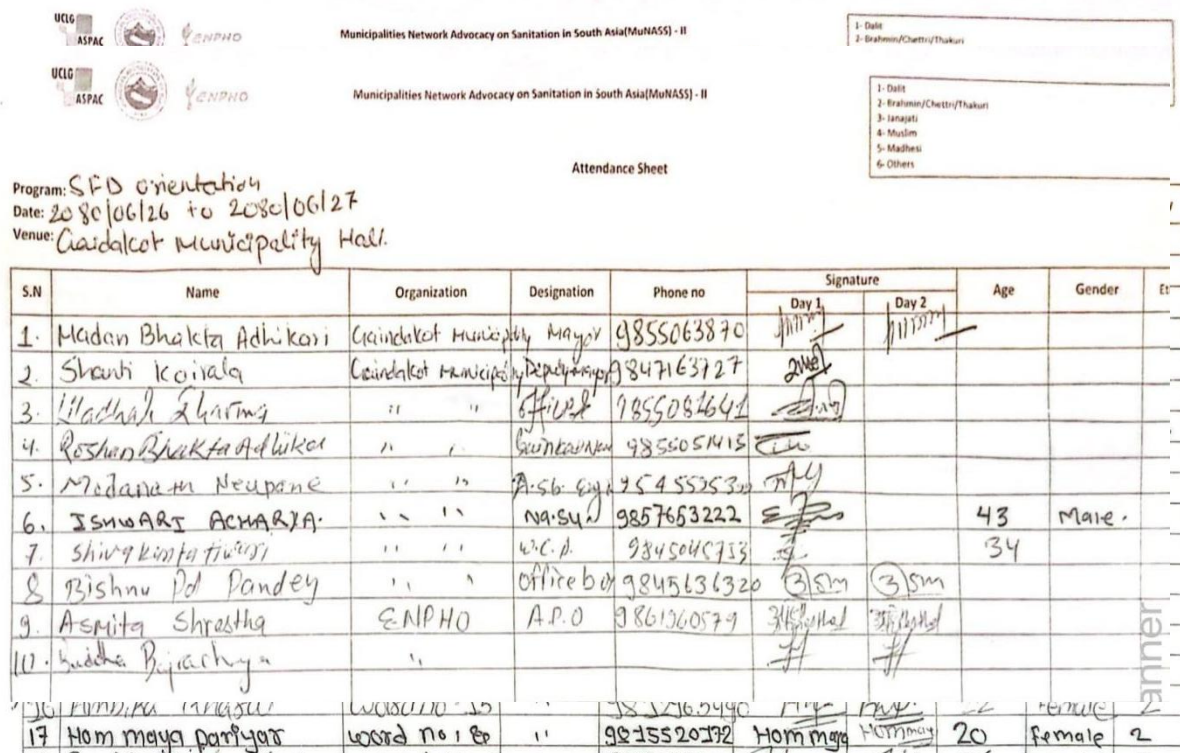 UCLG
ASPAC
ENPHO
Municipalities Network Advocacy on Sanitation in South Asia(MuNASS) - II
1- Dalit
2- Brahmin/Chettri/Thakuri
UCLG
ASPAC
ENPHO
Municipalities Network Advocacy on Sanitation in South Asia(MuNASS) - II
1- Dalit
2- Brahmin/Chettri/Thakuri
3- Janajati
4- Muslim
5- Madhesi
6- Others
Attendance Sheet
Program: SFD orientation
Date: 2080/06/26 to 2080/06/27
Venue: Gaidakot Municipality Hall.
S.N Name Organization Designation Phone no Signature Age Gender
Day 1 Day 2
1. Madan Bhakta Adhikari Gaindakot Municipality Mayor 9855063870
2. Shanti Koirala Gaindakot Municipality Deputy mayor 9847163727
3. Sharma " " officer 9855081641
4. Roshan Bhakta Adhikari " " 9855051415
5. Neupane " "
6. ISHWARI ACHARYA. " " Na.Su. 9857653222 43 Male.
7. " " 34
8 Bishnu Pd Pandey " " office boy 9845636320
9. Asmita Shrestha ENPHO A.P.O 9861360579
10. Buddha Bajracharya "
17 Hom maya pariyar word no: " 9815520172 Hommaya Hommaya 20 female 2
anner